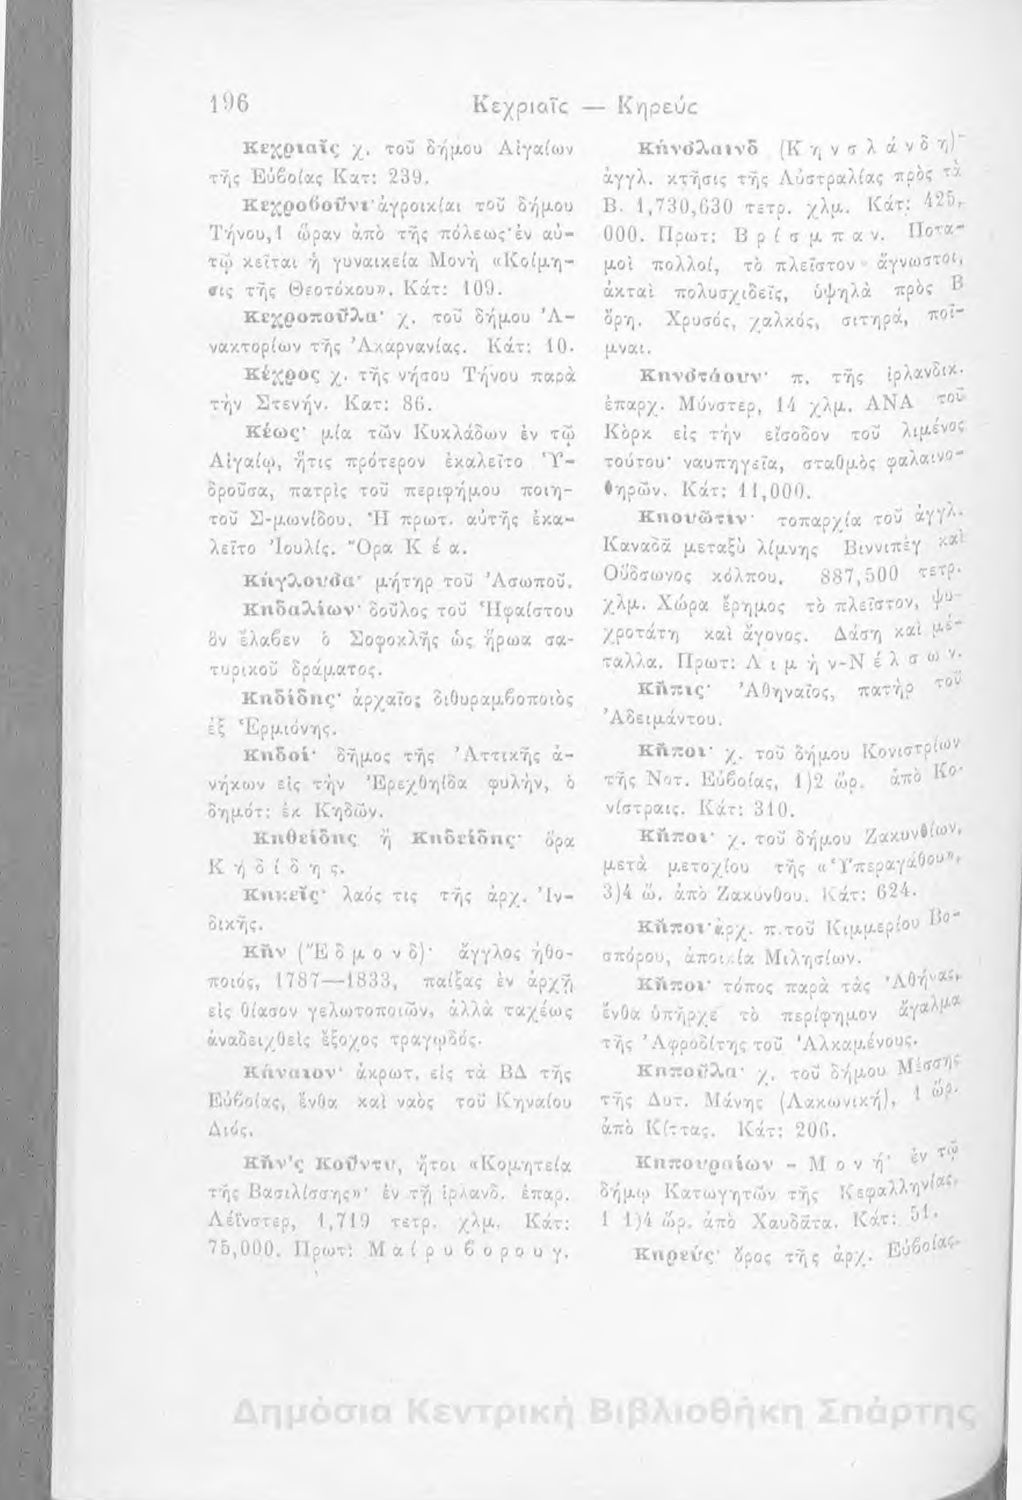 196
Κεχριαῖς — Κηρεύς
Κεχριαῖς χ. τοῦ δήμου Αἰγαίων
τῆς Εὐβοίας Κατ: 239.
Κεχροβοῦνι· ἀγροικίαι τοῦ δήμου
Τήνου, 1 ὥραν ἀπὸ τῆς πόλεως· ἐν αὐ-
τῷ κεῖται ἡ γυναικεία Μονὴ «Κοίμη-
σις τῆς Θεοτόκου». Κάτ: 109.
Κεχροποῦλα· χ. τοῦ δήμου Ἀ-
νακτορίων τῆς Ἀκαρνανίας. Κάτ: 10.
Κέχρος χ. τῆς νήσου Τήνου παρὰ
τὴν Στενήν. Κατ: 86.
Κέως· μία τῶν Κυκλάδων ἐν τῷ
Αἰγαίῳ, ἥτις πρότερον ἐκαλεῖτο Ὑ-
δροῦσα, πατρὶς τοῦ περιφήμου ποιη-
τοῦ Σ-μωνίδου. Ἡ πρωτ. αὐτῆς ἐκα-
λεῖτο Ἰουλίς. Ὅρα Κ έ α.
Κήγλουσα· μήτηρ τοῦ Ἀσωποῦ.
Κηδαλίων· δοῦλος τοῦ Ἡφαίστου
ὃν ἔλαβεν ὁ Σοφοκλῆς ὡς ἥρωα σα-
τυρικοῦ δράματος.
Κηδίδης· ἀρχαῖος διθυραμβοποιὸς
ἐξ Ἑρμιόνης.
Κηδοί· δῆμος τῆς Ἀττικῆς ἀ-
νήκων εἰς τὴν Ἐρεχθηίδα φυλήν, ὁ
δημότ: ἐκ Κηδῶν.
Κηθείδης ἢ Κηδείδης· ὅρα
Κ ή δ ί δ η ς.
Κηκεῖς· λαός τις τῆς ἀρχ. Ἰν-
δικῆς.
Κήν (Ἔ δ μ ο ν δ)· ἄγγλος ἠθο-
ποιός, 1787—1833, παίξας ἐν ἀρχῇ
εἰς θίασον γελωτοποιῶν, ἀλλὰ ταχέως
ἀναδειχθεὶς ἔξοχος τραγῳδός.
Κήναιον· ἀκρωτ. εἰς τὰ ΒΔ τῆς
Εὐβοίας, ἔνθα καὶ ναὸς τοῦ Κηναίου
Διός.
Κήν'ς Κοῦντυ, ἤτοι «Κομητεία
τῆς Βασιλίσσης»· ἐν τῇ ἰρλανδ. ἐπαρ.
Λέϊνστερ, 1,719 τετρ. χλμ. Κάτ:
75,000. Πρωτ: Μ α ί ρ υ β ο ρ ο υ γ.
Κήνσλαινδ (Κ η ν σ λ ά ν δ η)·
ἀγγλ. κτῆσις τῆς Αὐστραλίας πρὸς τὰ
Β. 1,730,630 τετρ. χλμ. Κάτ: 425,
000. Πρωτ: Β ρ ί σ μ π α ν. Ποτα-
μοὶ πολλοί, τὸ πλεῖστον ἄγνωστοι,
ἀκταὶ πολυσχιδεῖς, ὑψηλὰ πρὸς Β
ὄρη. Χρυσός, χαλκός, σιτηρά, ποί-
μναι.
Κηνστάουν· π. τῆς ἰρλανδικ.
ἐπαρχ. Μύνστερ, 14 χλμ. ΑΝΑ τοῦ
Κὸρκ εἰς τὴν εἴσοδον τοῦ λιμένος
τούτου· ναυπηγεῖα, σταθμὸς φαλαινο-
θηρῶν. Κάτ: 11,000.
Κηουῶτιν· τοπαρχία τοῦ ἀγγλ.
Καναδᾶ μεταξὺ λίμνης Βιννιπὲγ καὶ
Οὕδσωνος κόλπου. 887,500 τετρ.
χλμ. Χώρα ἔρημος τὸ πλεῖστον, ψυ-
χροτάτη καὶ ἄγονος. Δάση καὶ μέ-
ταλλα. Πρωτ: Λ ι μ ὴ ν-Ν έ λ σ ω ν.
Κῆπις· Ἀθηναῖος, πατὴρ τοῦ
Ἀδειμάντου.
Κῆποι· χ. τοῦ δήμου Κονιστρίων
τῆς Νοτ. Εὐβοίας, 1)2 ὥρ. ἀπὸ Κο-
νίστραις. Κάτ: 310.
Κῆποι· χ. τοῦ δήμου Ζακυνθίων,
μετὰ μετοχίου τῆς «Ὑπεραγάθου»,
3)4 ὥ. ἀπὸ Ζακύνθου. Κάτ: 624.
Κῆποι· ἀρχ. π. τοῦ Κιμμερίου Βο-
σπόρου, ἀποικία Μιλησίων.
Κῆποι· τόπος παρὰ τὰς Ἀθήνας,
ἔνθα ὑπῆρχε τὸ περίφημον ἄγαλμα
τῆς Ἀφροδίτης τοῦ Ἀλκαμένους.
Κηποῦλα· χ. τοῦ δήμου Μέσσης
τῆς Δυτ. Μάνης (Λακωνική), 1 ὥρ.
ἀπὸ Κίττας. Κάτ: 206.
Κηπουραίων - Μ ο ν ή· ἐν τῷ
δήμῳ Κατωγητῶν τῆς Κεφαλληνίας,
1 1)4 ὥρ. ἀπὸ Χαυδᾶτα. Κάτ: 51.
Κηρεύς· ὄρος τῆς ἀρχ. Εὐβοίας.
Δημόσια Κεντρική Βιβλιοθήκη Σπάρτης